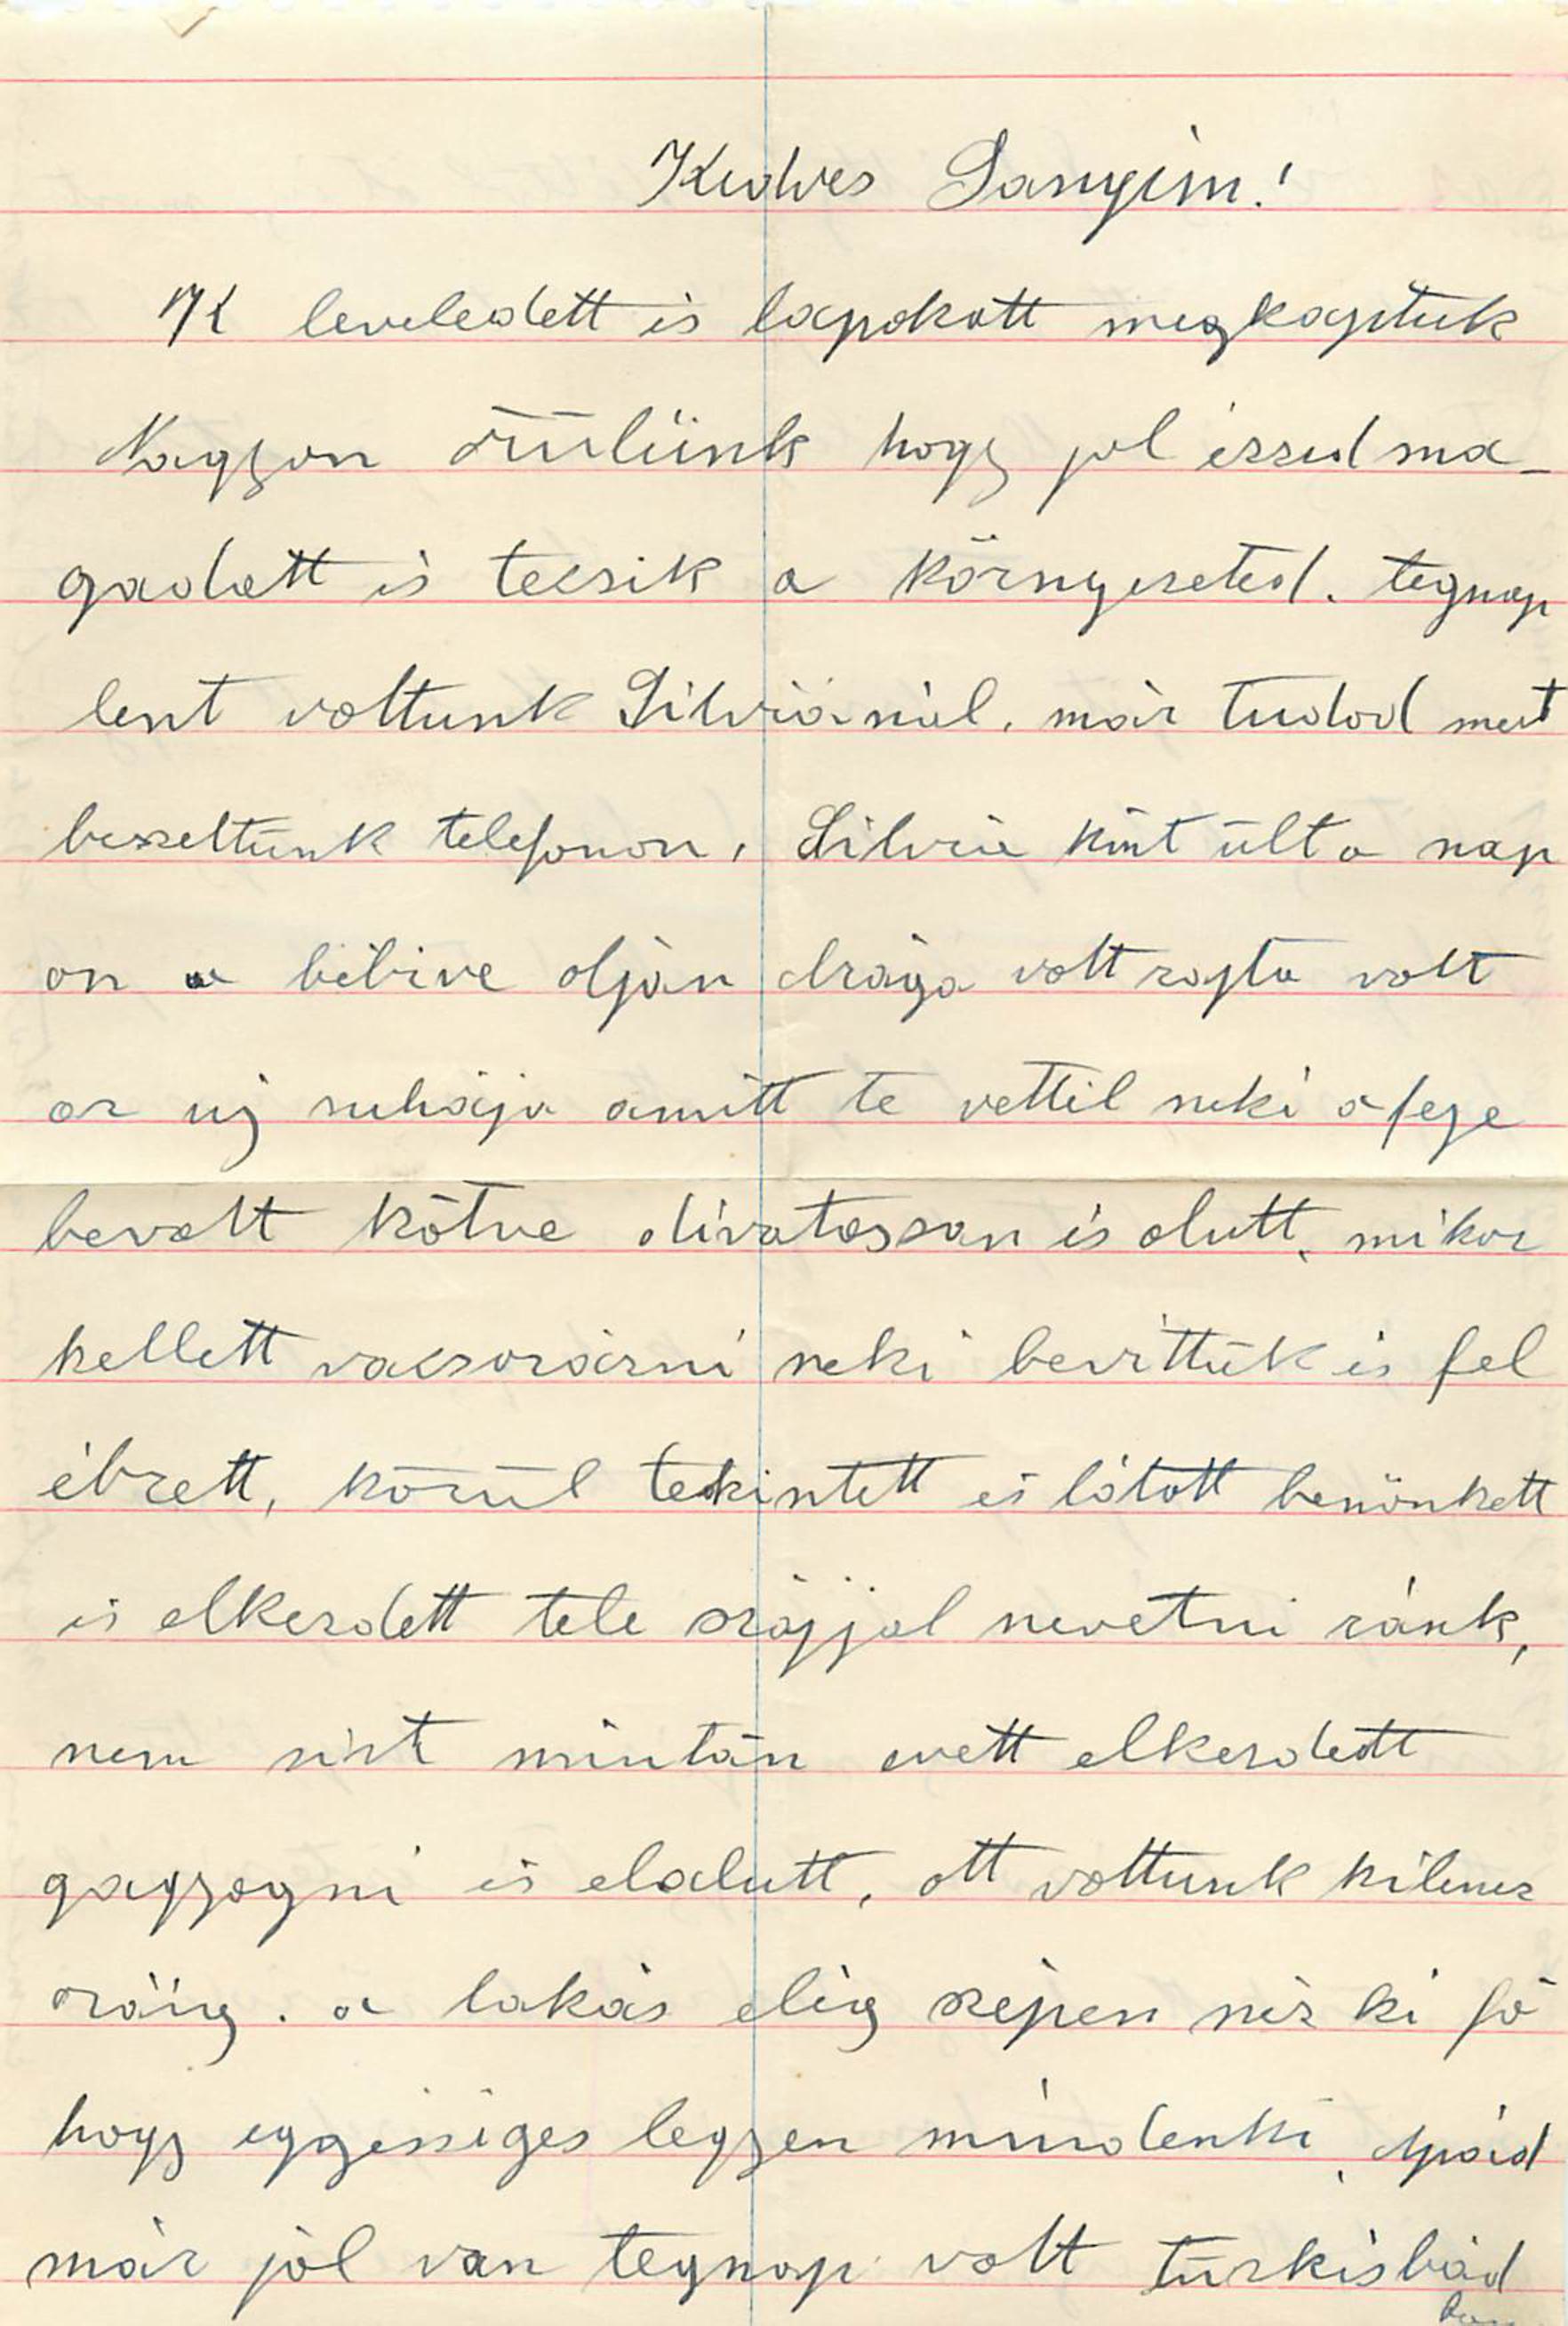 Kedves Sanyim!
K leveledett és lapokatt megkaptuk
Nagyon örülünk hogy jol érzed ma-
gadatt és tecsik a környezeted. tegnap
lent voltunk Silviánál, már tudod mert
beszeltünk telefonon, Silvia kint ült a nap
on a bébive olján drága volt rajta volt
az uj ruhája amitt te vettél neki a feje
bevolt kötve divatossan és alutt, mikor
kellett vacsorázni neki bevittük és fel
ébrett, körül tekintett és látott benönkett
és elkezdett tele szájjal nevetni ránk,
nem sirt miután evett elkezdett
gagyogni és elalutt, ott voltunk kilenc
óráig. a lakás elég szépen néz ki fö
hogy egyésséges legyen mindenki, Apád
már jól van tegnap volt türkisbád